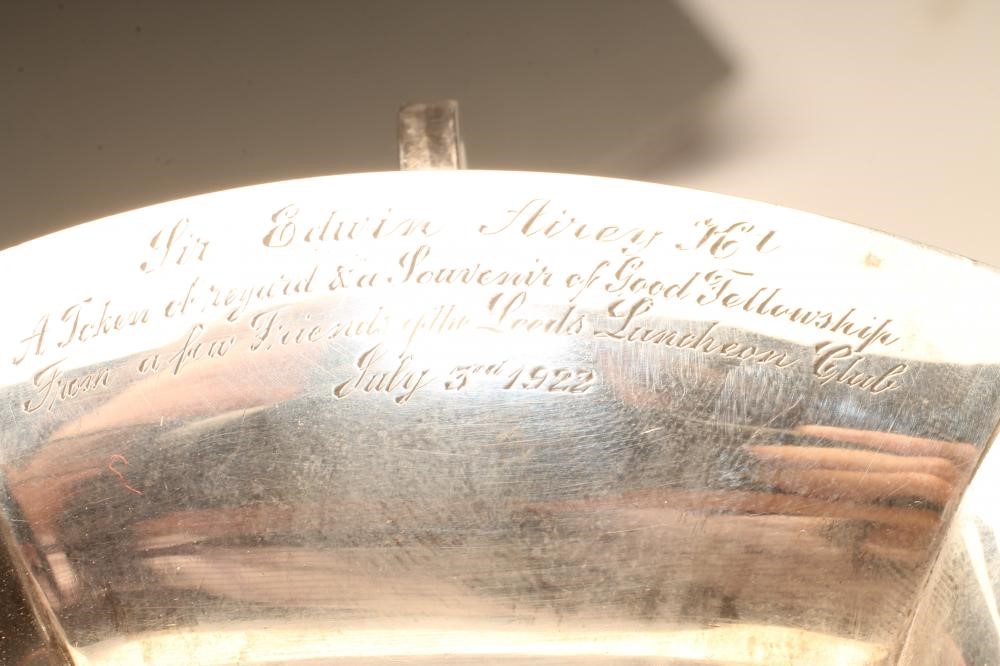 Sir Edwin Airey Kt
A Token of regard & a Souvenir of Good Fellowship
From a few Friends of the Leeds Luncheon Club
July 3rd 1922